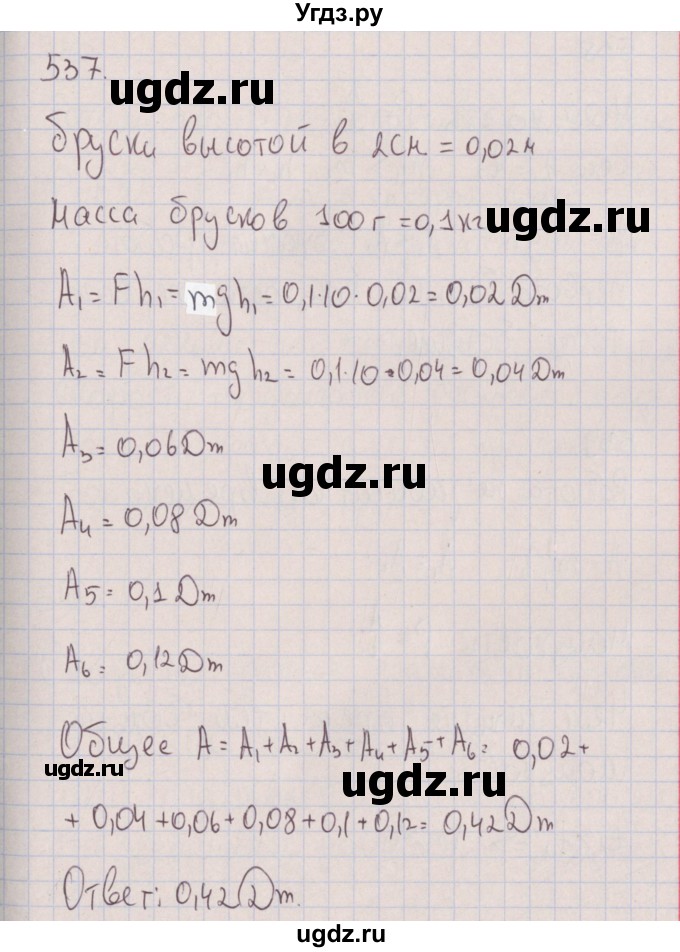 Угдз.ру
537.
ugdz.ru
бруски высотой в 2см = 0,02м
Масса брусков 100г = 0,1кг ugdz.ru
A₁ = Fh₁ = mgh₁ = 0,1·10·0,02 = 0,02 Дж
A₂ = Fh₂ = mgh₂ = 0,1·10·0,04 = 0,04 Дж
A₃ = 0,06 Дж
ugdz.ru
A₄ = 0,08 Дж
A5 = 0,1 Дж
A₆ = 0,12 Дж
Общее A = A₁ + A₂ + A₃ + A₄ + A5 + A₆ = 0,02 +
ugdz.ru
ugdz.ru
+ 0,04 + 0,06 + 0,08 + 0,1 + 0,12 = 0,42 Дж
Ответ: 0,42 Дж.
ugdz.ru
Угдз.ру